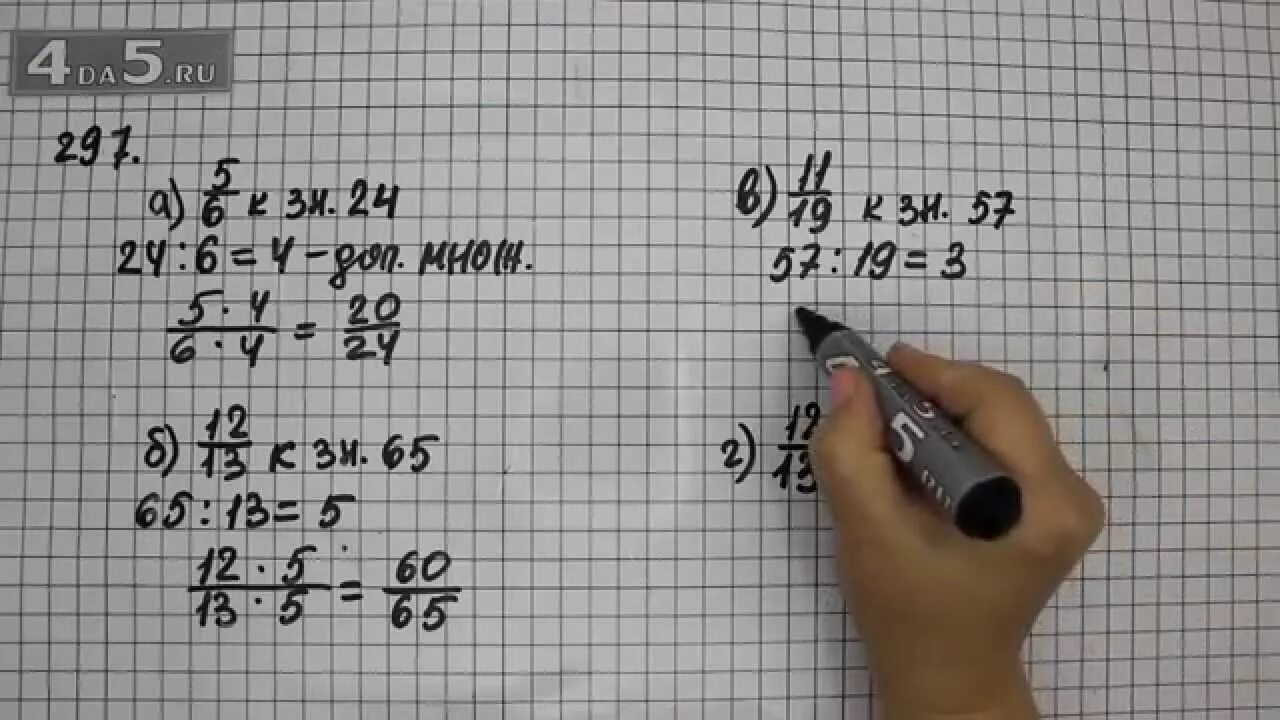 4DA5.RU
297.
а) 5/6 к зн. 24
24 : 6 = 4 – доп. множ.
5 · 4 / 6 · 4 = 20/24
б) 12/13 к зн. 65
65 : 13 = 5
12 · 5 / 13 · 5 = 60/65
в) 11/19 к зн. 57
57 : 19 = 3
г) 12/13